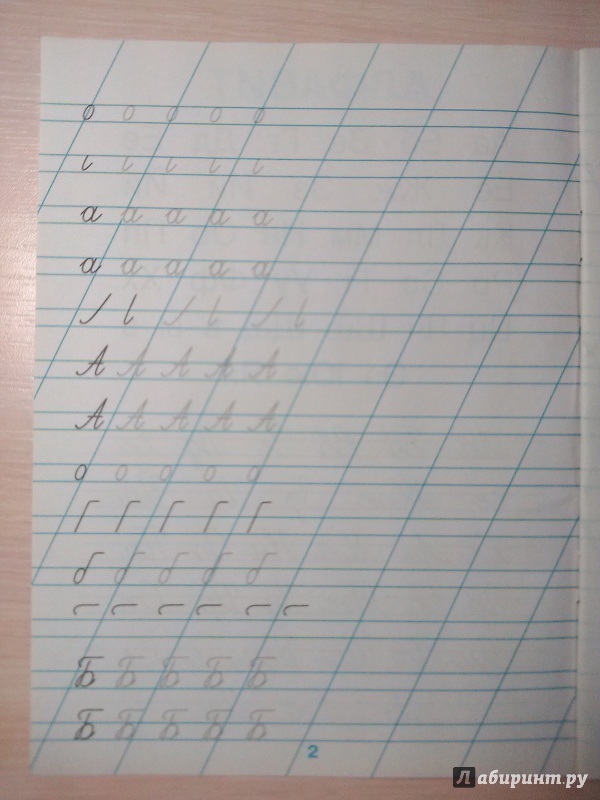 о о о о о
а а а а а
а а а а а
А А А А А
А А А А А
о о о о о
б б б б б
Б Б Б Б Б
Б Б Б Б Б
2
Лабиринт.ру